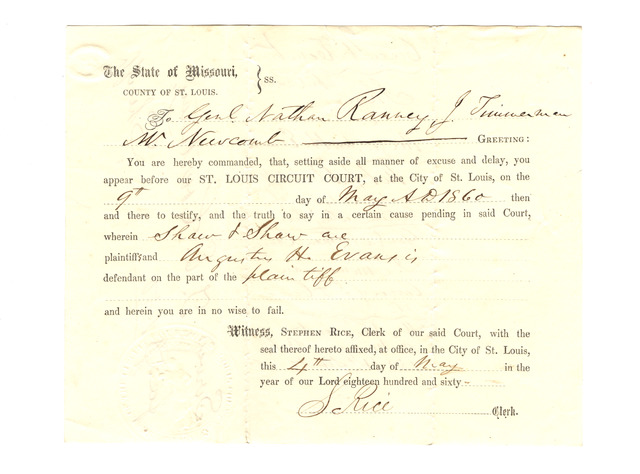 The State of Missouri, } ss.
COUNTY OF ST. LOUIS.
To Genl Nathan Ranney J. Timmerman
Mr. Newcomb GREETING:
You are hereby commanded, that, setting aside all manner of excuse and delay, you
appear before our ST. LOUIS CIRCUIT COURT, at the City of St. Louis, on the
9th day of May A.D. 1860 then
and there to testify, and the truth to say in a certain cause pending in said Court,
wherein Shaw & Shaw are
plaintiffs and Augustus H. Evans is
defendant on the part of the plaintiff
and herein you are in no wise to fail.
Witness, STEPHEN RICE, Clerk of our said Court, with the
seal thereof hereto affixed, at office, in the City of St. Louis,
this 4th day of May in the
year of our Lord eighteen hundred and sixty-
S Rice Clerk.